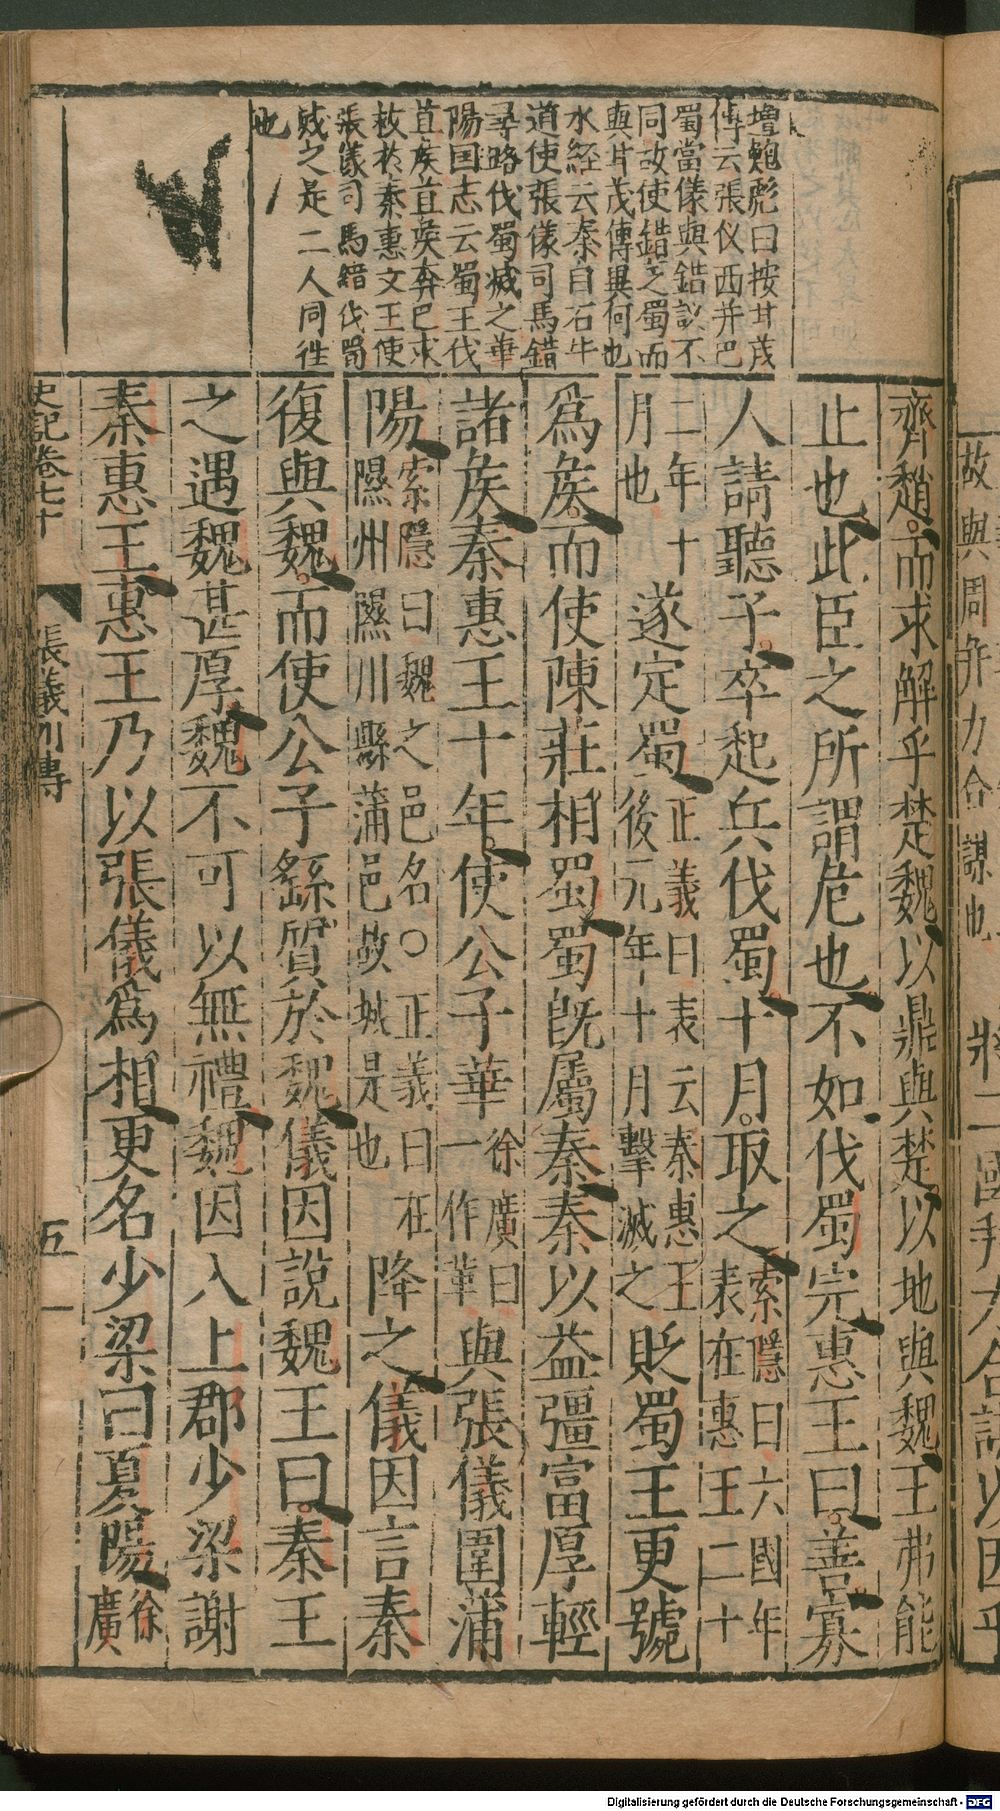 增鮑彪曰按甘茂
傳云張仪西并巴
蜀當儀與錯議不
同故使錯之蜀而
與甘茂傳異何也
水經云秦自石牛
道使張儀司馬錯
尋路伐蜀滅之華
陽国志云蜀王伐
苴矦苴矦奔巴求
救於秦惠文王使
張儀司馬錯伐蜀
滅之是二人同徃
也
齊趙而求解乎楚魏以鼎與楚以地與魏王弗能
止也此臣之所謂危也不如伐蜀完惠王曰善寡
人請聽子卒起兵伐蜀十月取之索隱曰六國年表在惠王二十
二年十月也遂定蜀正義曰表云秦惠王後元年十月擊滅之貶蜀王更號
爲矦而使陳莊相蜀蜀旣屬秦秦以益彊富厚輕
諸矦秦惠王十年使公子華徐廣曰一作革與張儀圍蒲
陽索隱曰魏之邑名○正義曰在隰州隰川縣蒲邑故城是也降之儀因言秦
復與魏而使公子繇質於魏儀因說魏王曰秦王
之遇魏甚厚魏不可以無禮魏因入上郡少梁謝
秦惠王惠王乃以張儀爲相更名少梁曰夏陽徐廣
史記卷七十 張儀列傳 五
故與周并力合謀也
Digitalisierung gefördert durch die Deutsche Forschungsgemeinschaft - DFG